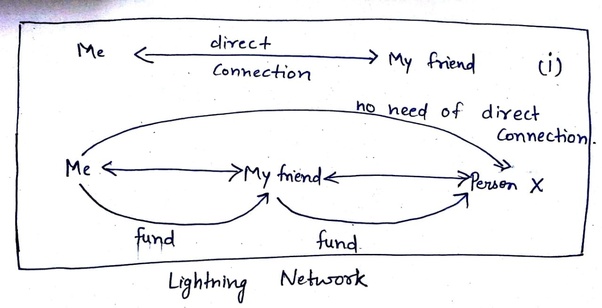 Me direct connection My friend (i)
no need of direct
connection.
Me My friend Person X
fund fund.
Lightning Network